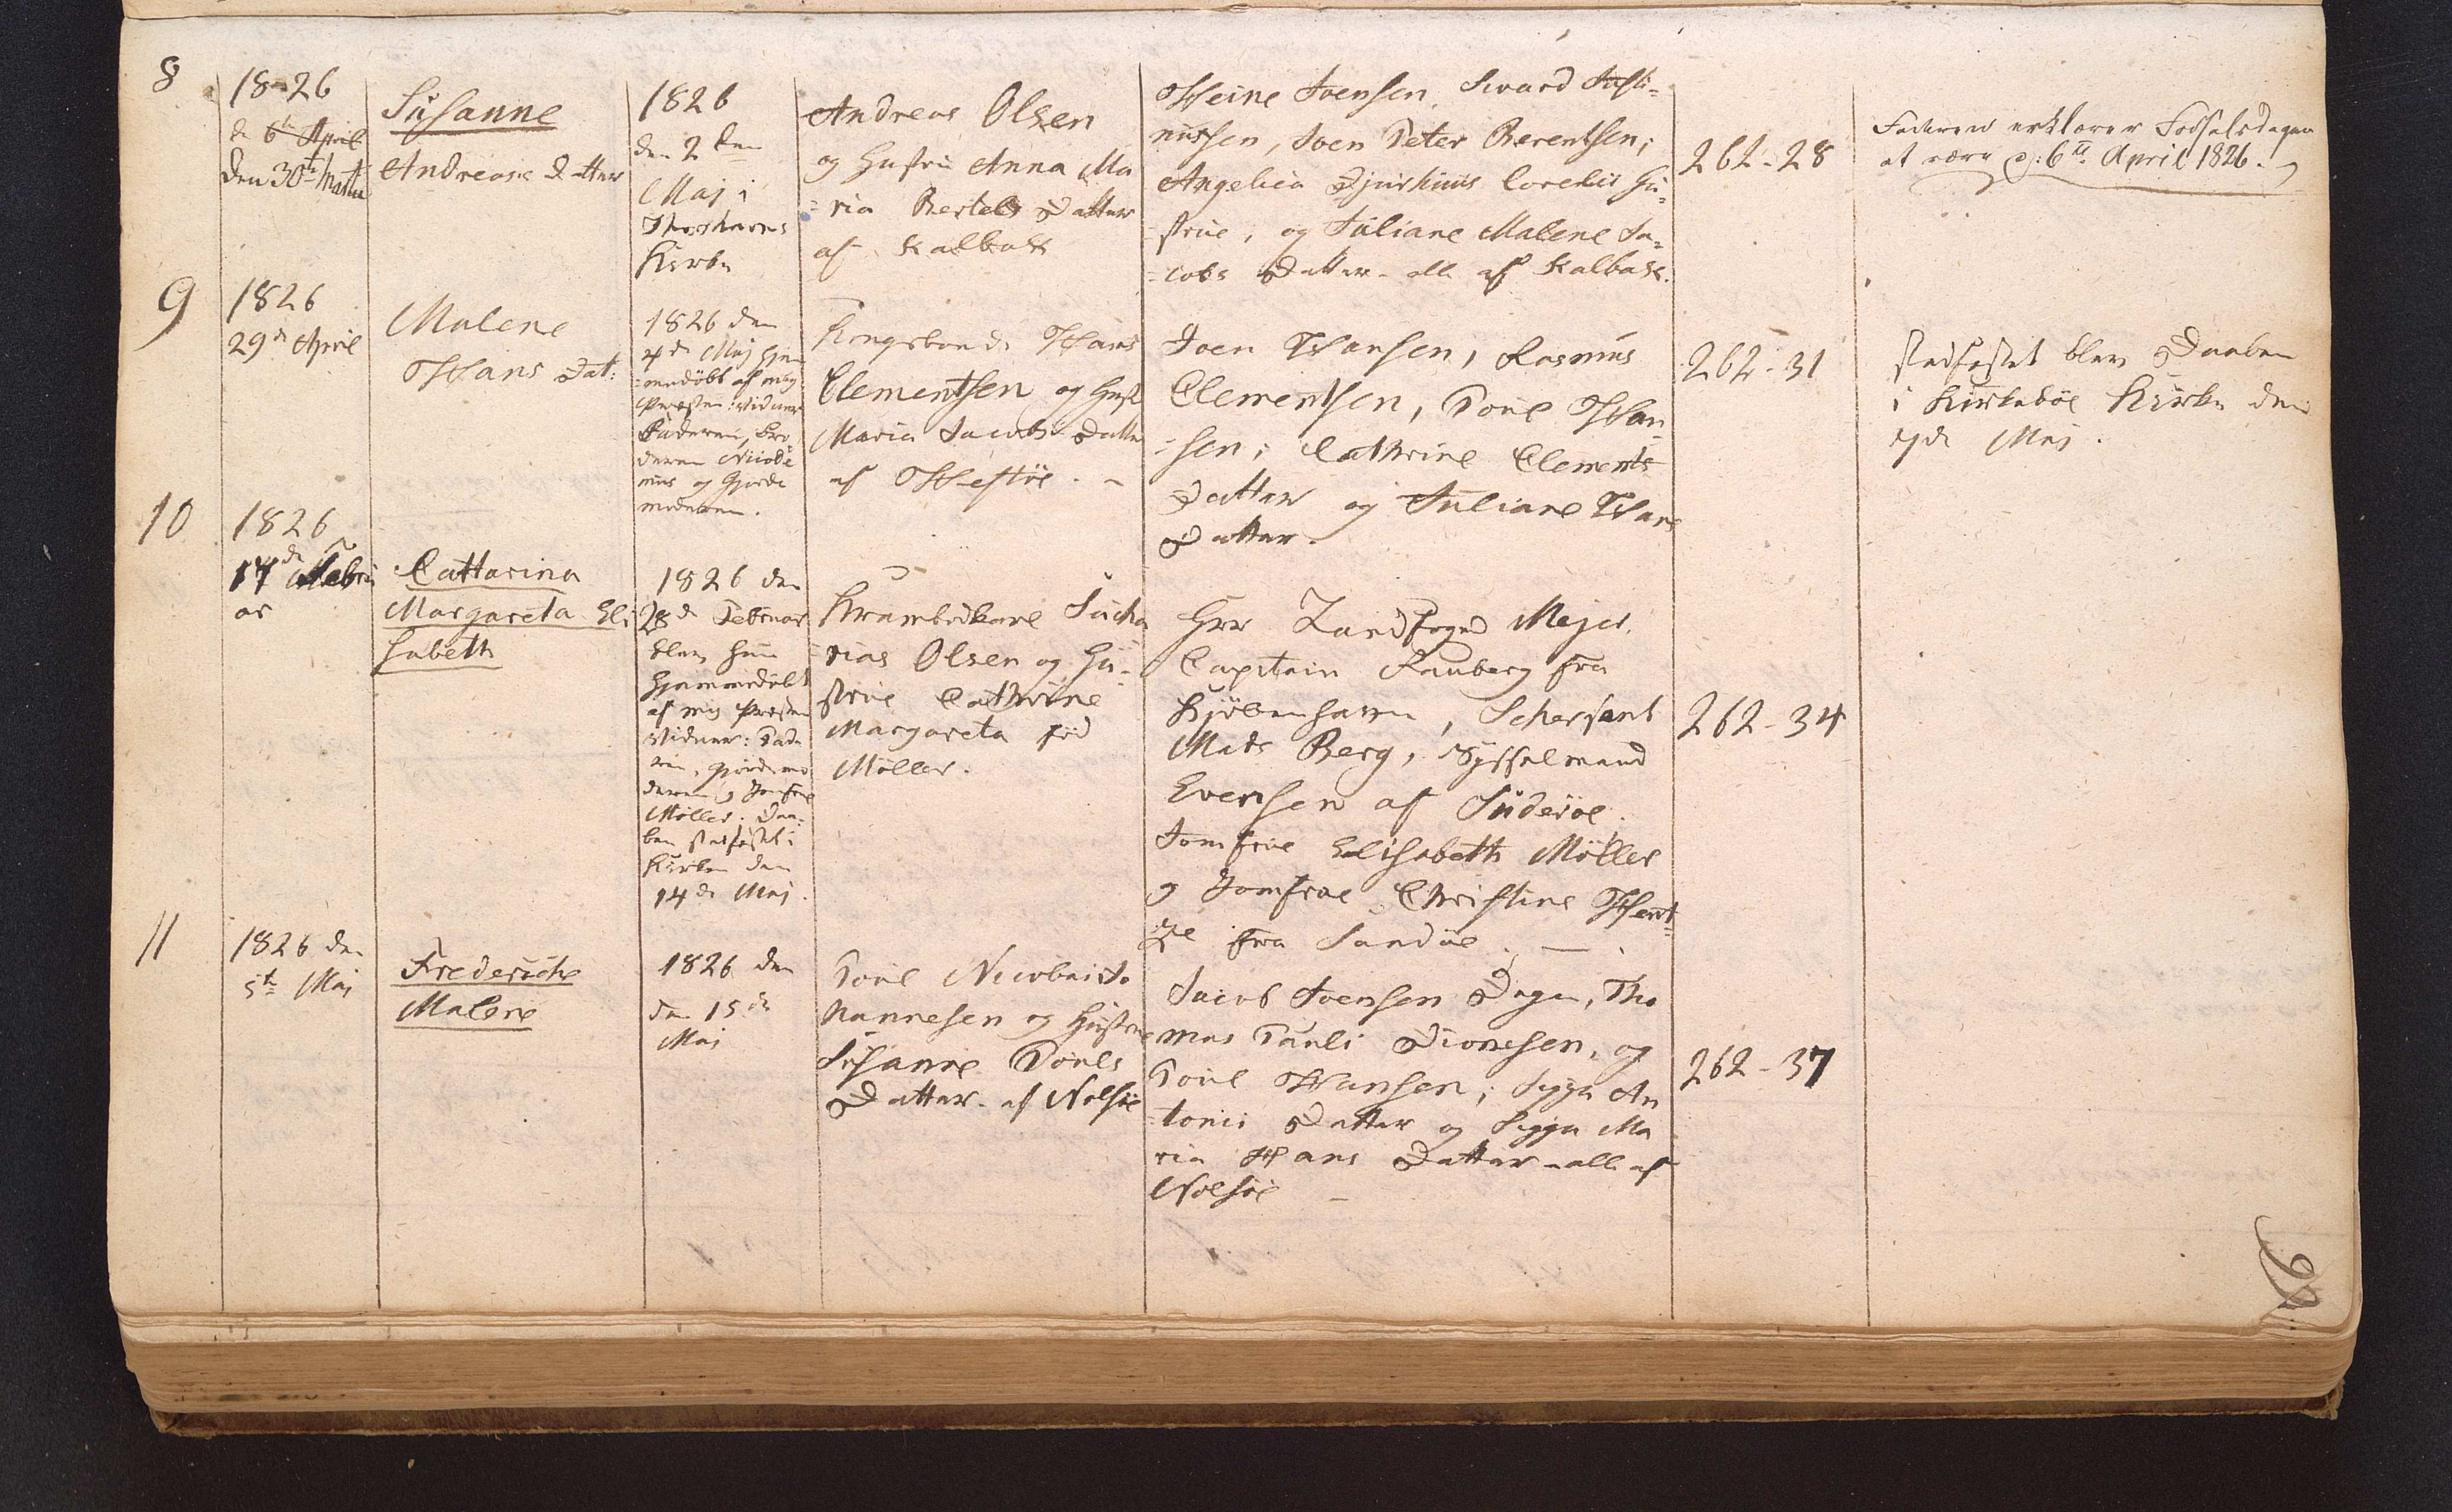 8
18-26
d 6te April
den 30te Martii
Susanne
Andrease Datter
1826
den 2den
Maj i
Thorshavns
Kirke
Andreas Olsen
og Hustrue Anna Ma
ria Bertels Datter
af Kalbak
Heine Joensen, Sivard Justi-
nussen, Joen Peter Berentsen;
Angelica Djurhuus Corelii Hu-
strue, og Juliane Malene Ja-
cobs Datter alle af Kalbak.
262-28
Faderen erklærer Fødselsdagen
at være d: 6te April 1826.
9
1826
29de April
Malene
Hans Dat:
1826 den
4de Maj hjem
medøbt af mig
Præsten: Vidner
Faderen, Bro-
deren Nicode
mus og Gjorde
moderen.
Kongsbonde Hans
Clementsen og Hust
Maria Jacobs Datter
af Hestöe.
Joen Hansen, Rasmus
Clementsen, Poul Han-
sen; Cathrine Clements
Datter og Juliane Hans
Datter.
262-31
stadfæstet blev Daaben
i Kirkeböe Kirke den
7de Maj.
10
1826
17de Febru
ar
Cattarina
Margareta Eli
sabeth
1826 den
28de Februar
blev hun
hjemmedøbt
af mig Præsten
Vidner: Fade
ren, Gjordemo
deren og Jomfrue
Møller. Daa-
ben stadfæstet i
Kirken den
14de Maj.
Krambodkarl Sacha
rias Olsen og Hu-
strue Cathrine
Margareta fød
Möller.
Herr Landfoged Mejer.
Capitain Rauberg fra
Kjöbenhavn, Schersant
Mads Berg, Sysselmand
Evensen af Süderöe.
Jomfrue Elisabeth Möller
og Jomfrue Christine Hent-
ze fra Sandöe.
262-34
11
1826 den
5te Maj
Frederiche
Malene
1826 den
den 15de
Maj
Poul Nicolai Jo
hannesen og Hustrue
Susanne Pouls
Datter af Nolsöe
Jacob Joensen Dagen, Tho
mas Pauli Dionesen, og
Poul Hansen; Sygga An
tonii Datter og Sigga Ma
ria Hans Datter alle af
Nolsöe
262-37